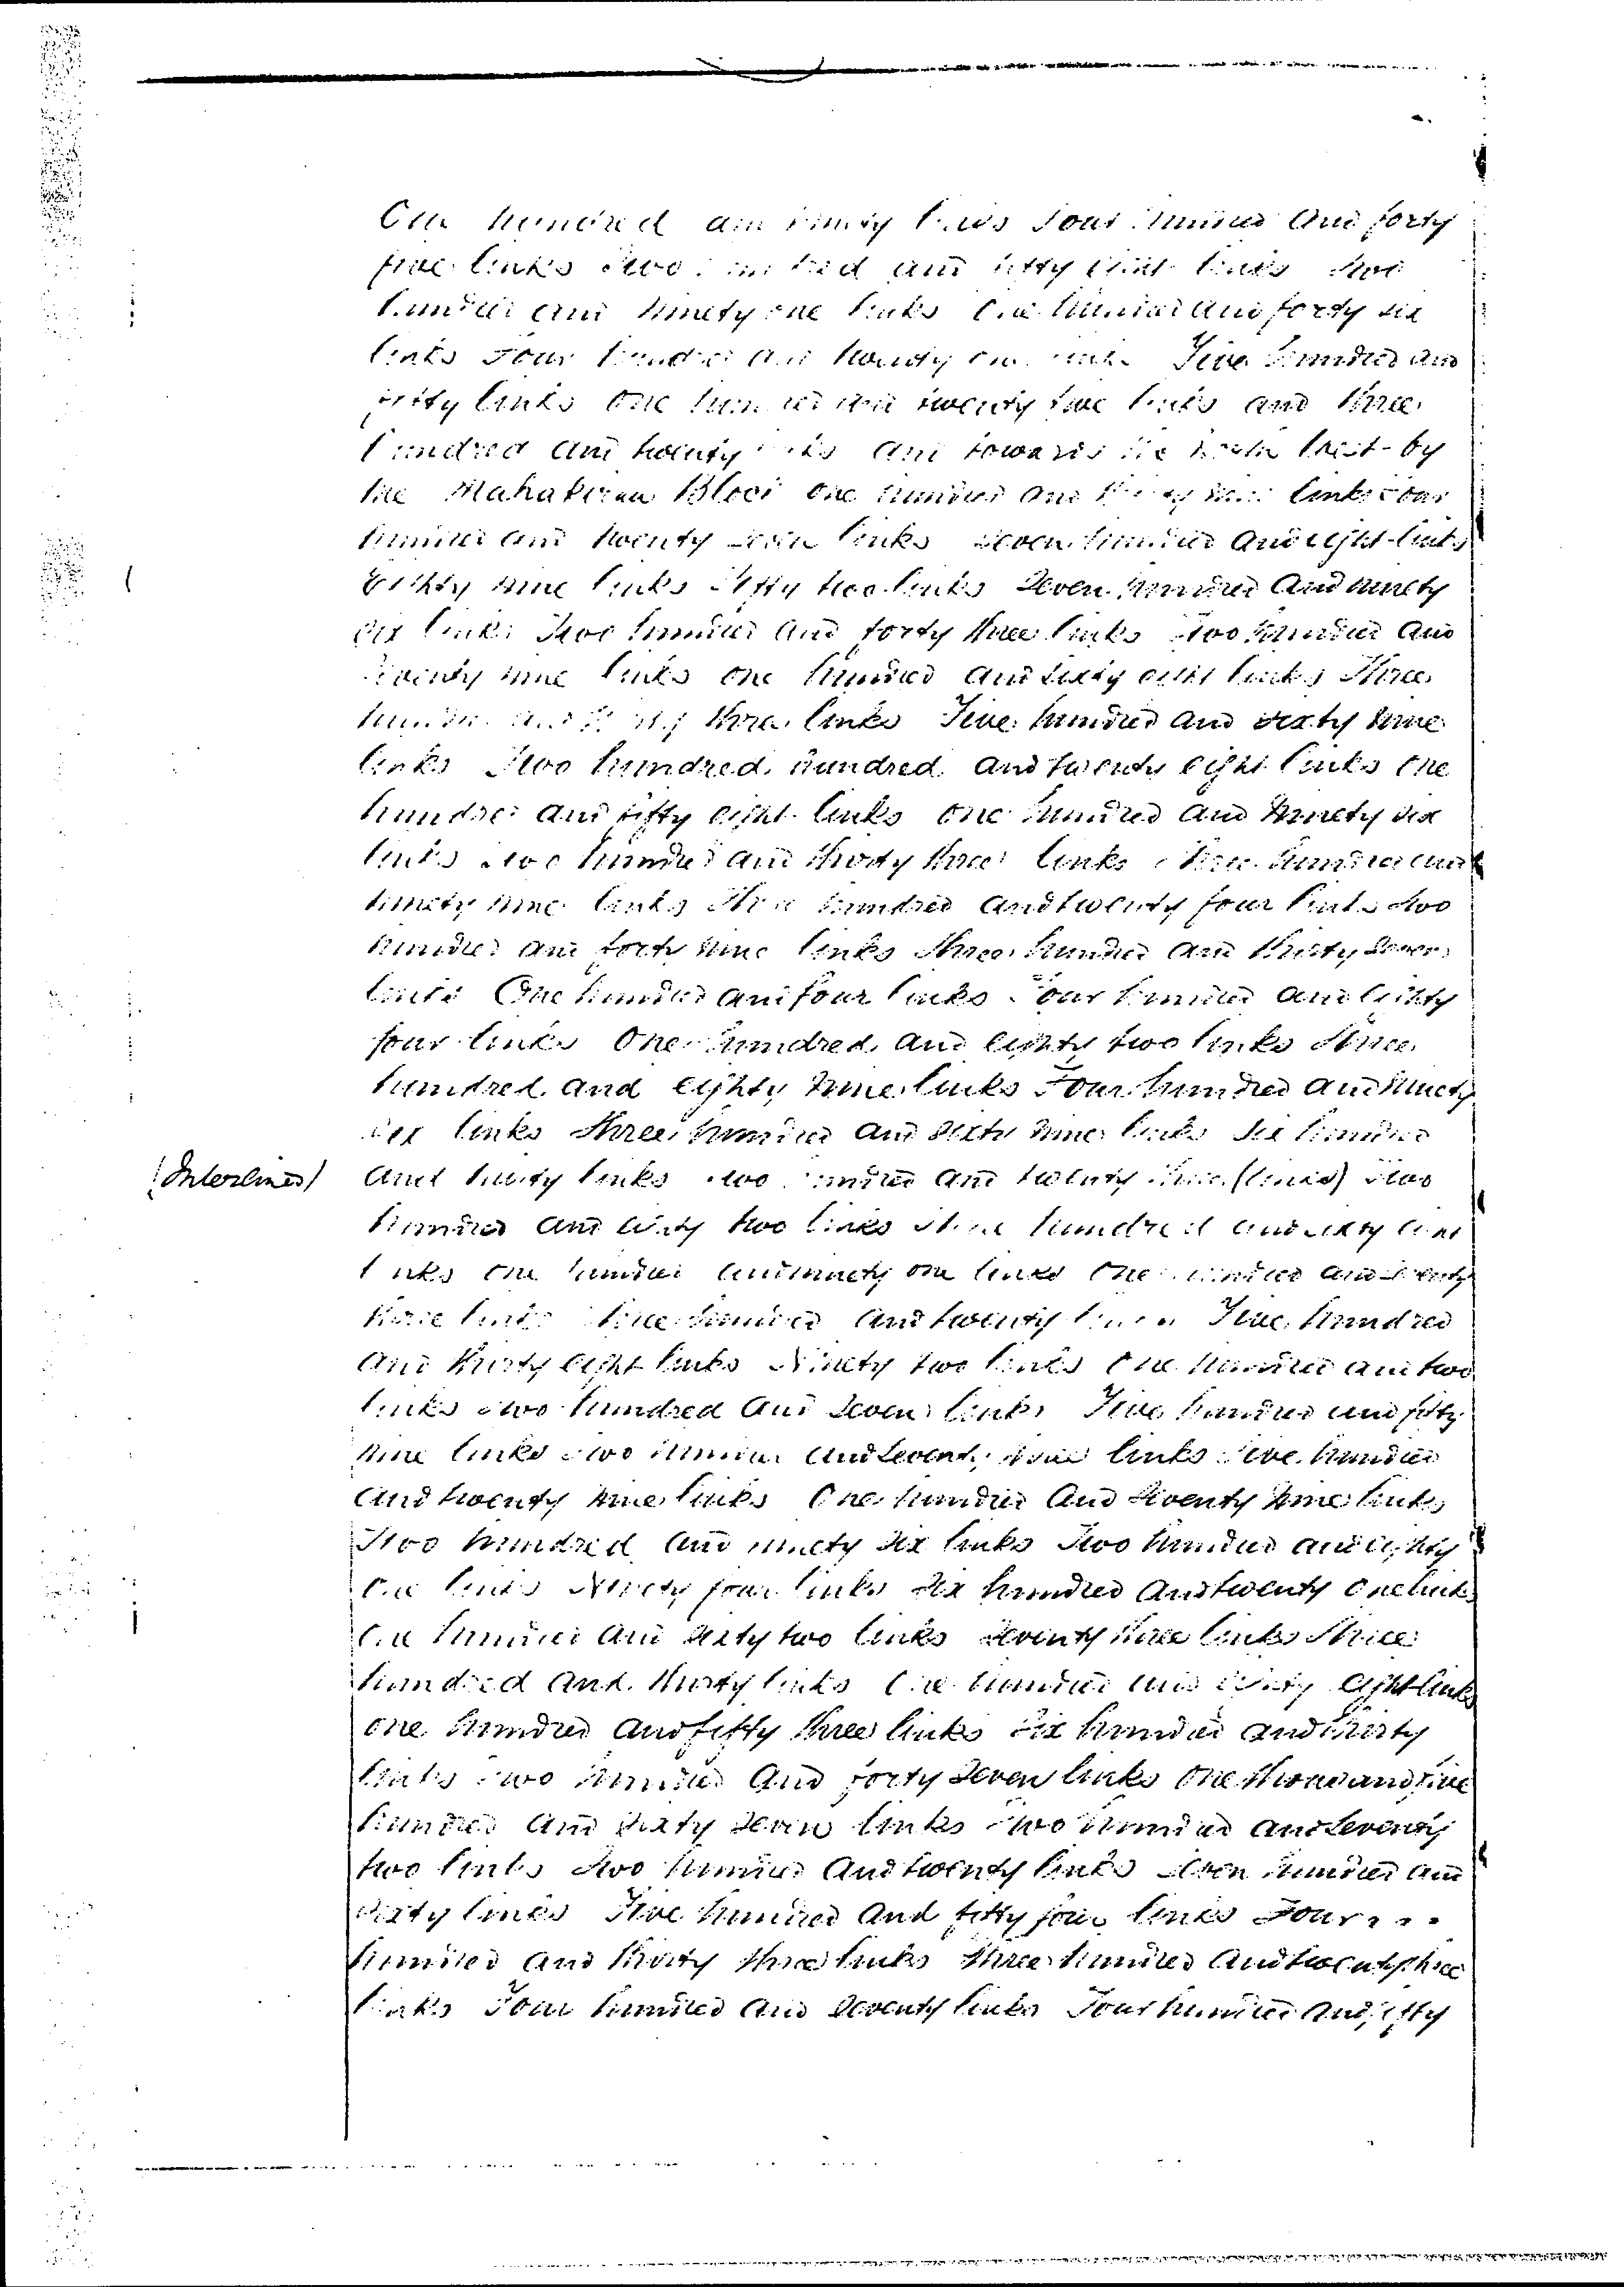 One hundred and ninety links Four hundred and forty
five links Two hundred and fifty eight links Two
hundred and ninety one links One hundred and forty six
links Four hundred and twenty one links Five hundred and
fifty links One hundred and twenty five links and three
hundred and twenty links and towards the North East by
the Mahakirau Block one hundred and nine links Four
hundred and twenty seven links Seven hundred and eight links
Eighty nine links Fifty two links Seven hundred and ninety
six links Two hundred and forty three links Two hundred and
nine links one hundred and sixty eight links Three
hundred and three links Five hundred and sixty nine
links Two hundred hundred and twenty eight links One
hundred and fifty eight links one hundred and ninety six
links Two hundred and thirty three links Three hundred and
ninety nine links Three hundred and twenty four links Two
hundred and forty nine links Three hundred and thirty seven
links One hundred and four links Four hundred and eighty
four links One hundred and eighty two links Three
hundred and eighty nine links Four hundred and ninety
six links Three hundred and sixty nine links Six hundred
(Interlined) and links Two hundred and twenty three (links) Two
hundred and two links Three hundred and sixty
links one hundred and ninety one links One hundred and
three links Three hundred and twenty links Five hundred
and thirty eight links Ninety two links One hundred and two
links Two hundred and seven links Five hundred and fifty
nine links Two hundred and seventy links Five hundred
and twenty nine links One hundred and seventy nine links
Two hundred and ninety six links Two hundred and eighty
one links Ninety four links Six hundred and twenty one links
One hundred and sixty two links Seventy three links Three
hundred and thirty links One hundred and eight links
one hundred and fifty three links Six hundred and thirty
links Two hundred and forty seven links One thousand five
hundred and sixty seven links Two hundred and seventy
two links Two hundred and twenty links Seven hundred and
sixty links Five hundred and fifty four links Four
hundred and thirty three links Three hundred and twenty three
links Four hundred and seventy links Four hundred and fifty